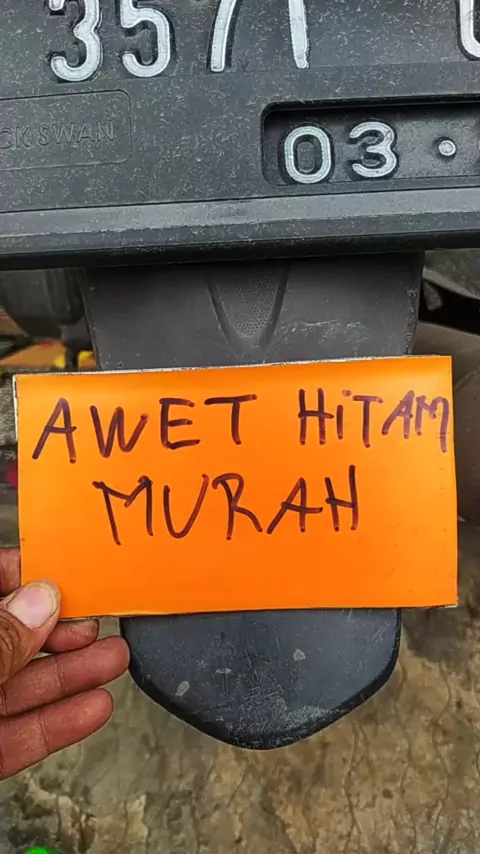 3571
CK SWAN
03 ·
AWET HiTAM
MURAH